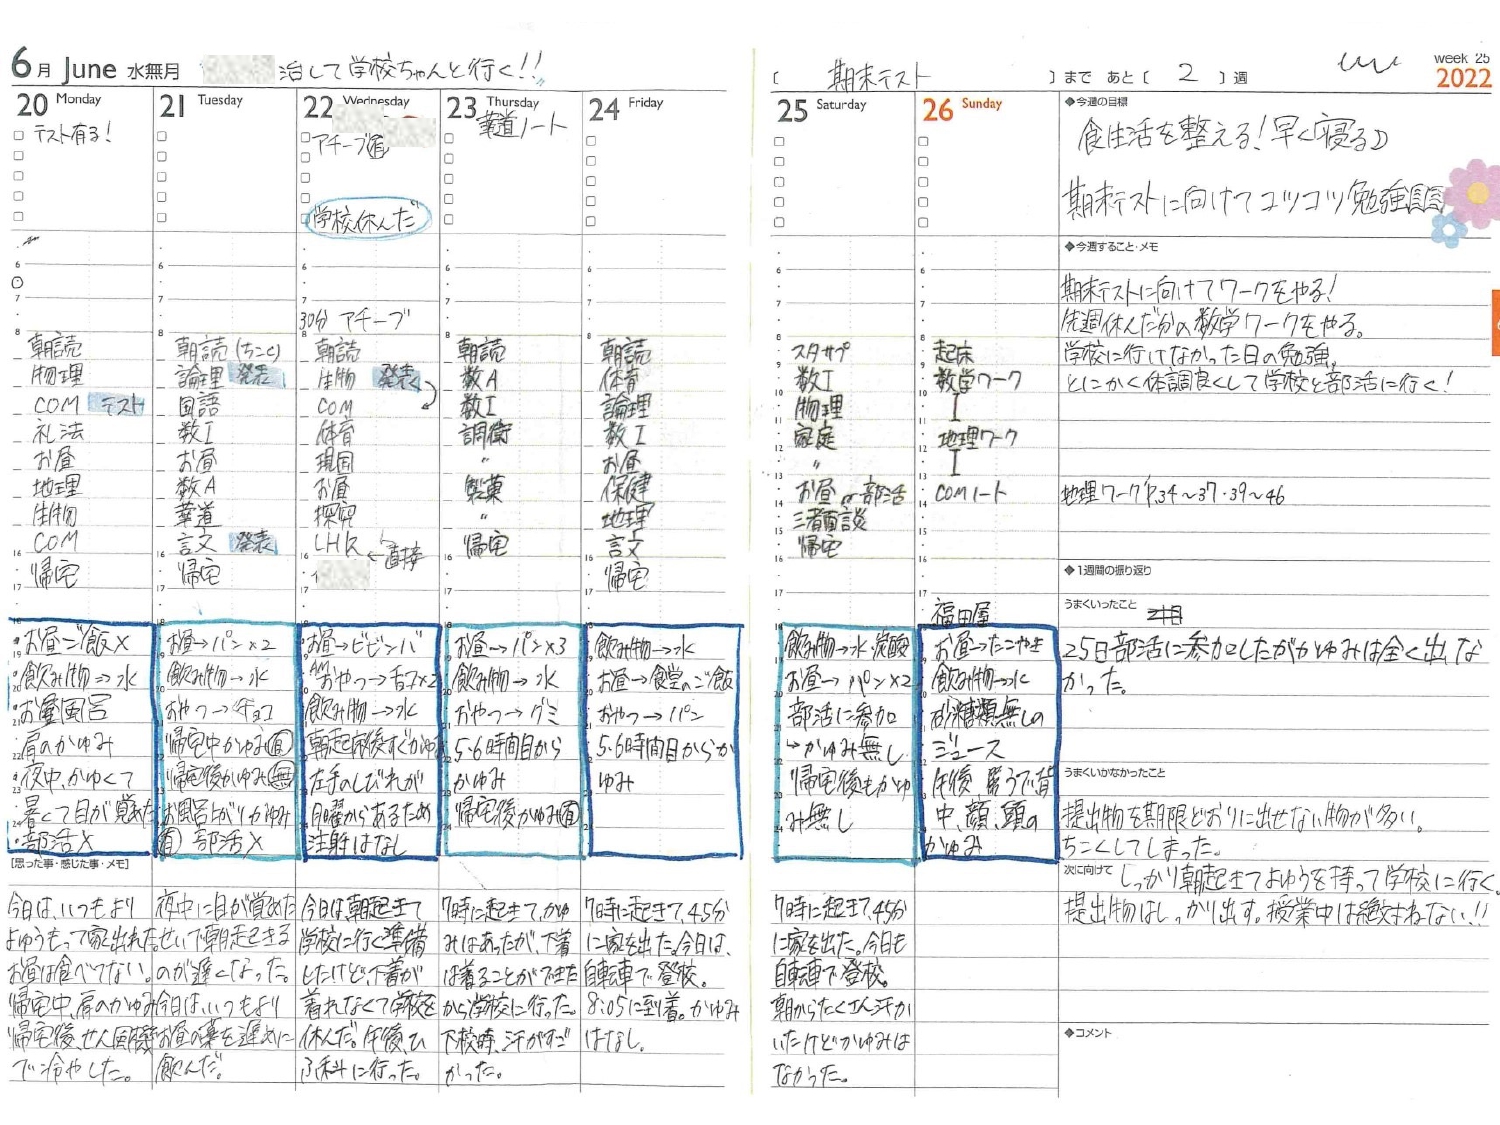 6月 June 水無月
治して学校ちゃんと行く!!
20 Monday
テスト有る!
朝読
物理
COM テスト
礼法
お昼
地理
生物
COM
帰宅
お昼ご飯×
飲み物→水
お昼風呂
肩のかゆみ
夜中、かゆくて
暑くて目が覚めた
部活×
[思った事・感じた事・メモ]
今日は、いつもより
よゆうもって家出れた
お昼は食べてない。
帰宅中、肩のかゆみ
帰宅後、せん風機
で冷やした。
21 Tuesday
朝読(ちこく)
論理 発表
国語
数I
お昼
数A
華道
言文 発表
帰宅
お昼→パン×2
飲み物→水
おやつ→チョコ
帰宅中かゆみ有
帰宅後かゆみ無
お風呂上がりかゆみ
有 部活×
夜中に目が覚めた
せいで朝起きる
のが遅くなった。
今日は、いつもより
お昼の薬を遅めに
飲んだ。
22 Wednesday
アチーブ
学校休んだ
30分 アチーブ
朝読
生物 発表
COM
体育
現国
お昼
探究
LHR ←直接
お昼→ビビンバ
おやつ→
飲み物→水
朝起床後すぐかゆみ
左手のしびれが
月曜からあるため
注射はなし
今日は朝起きて
学校に行く準備
したけど、下着が
着れなくて学校を
休んだ。午後、ひ
ふ科に行った。
23 Thursday
華道ノート
朝読
数A
数I
調衛
〃
製菓
〃
帰宅
お昼→パン×3
飲み物→水
おやつ→グミ
5・6時間目から
かゆみ
帰宅後かゆみ有
7時に起きて、かゆ
みはあったが、下着
は着ることができた
から学校に行った。
下校時、汗がすご
かった。
24 Friday
朝読
体育
論理
数I
お昼
保健
地理
言文
帰宅
飲み物→水
お昼→食堂のご飯
おやつ→パン
5・6時間目からか
ゆみ
7時に起きて、45分
に家を出た。今日は、
自転車で登校。
8:05に到着。かゆみ
はなし。
[ 期末テスト ]まで あと[ 2 ]週
week 25
2022
25 Saturday
スタサプ
数I
物理
家庭
〃
お昼 or 部活
三者面談
帰宅
飲み物→水・炭酸
お昼→パン×2
部活に参加
→かゆみ無し
帰宅後もかゆ
み無し
7時に起きて、45分
に家を出た。今日も
自転車で登校。
朝からたくさん汗か
いたけどかゆみは
なかった。
26 Sunday
起床
数学ワーク
地理ワーク
COMノート
福田屋
お昼→たこやき
飲み物→水
砂糖類無しの
ジュース
午後、
中、顔、頭の
かゆみ
◆今週の目標
食生活を整える!早く寝る
期末テストに向けてコツコツ勉強
◆今週すること・メモ
期末テストに向けてワークをやる!
先週休んだ分の数学ワークをやる。
学校に行けなかった日の勉強。
とにかく体調良くして学校と部活に行く!
地理ワークP.34〜37・39〜46
◆1週間の振り返り
うまくいったこと
25日部活に参加したがかゆみは全く出な
かった。
うまくいかなかったこと
提出物を期限どおりに出せない物が多い。
ちこくしてしまった。
次に向けて しっかり朝起きてよゆうを持って学校に行く。
提出物はしっかり出す。授業中は絶対ねない!!
◆コメント